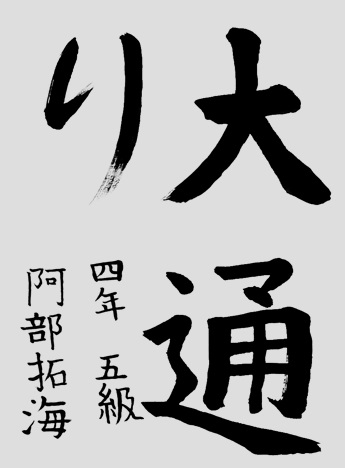 大通
り
四年 五級
阿部拓海